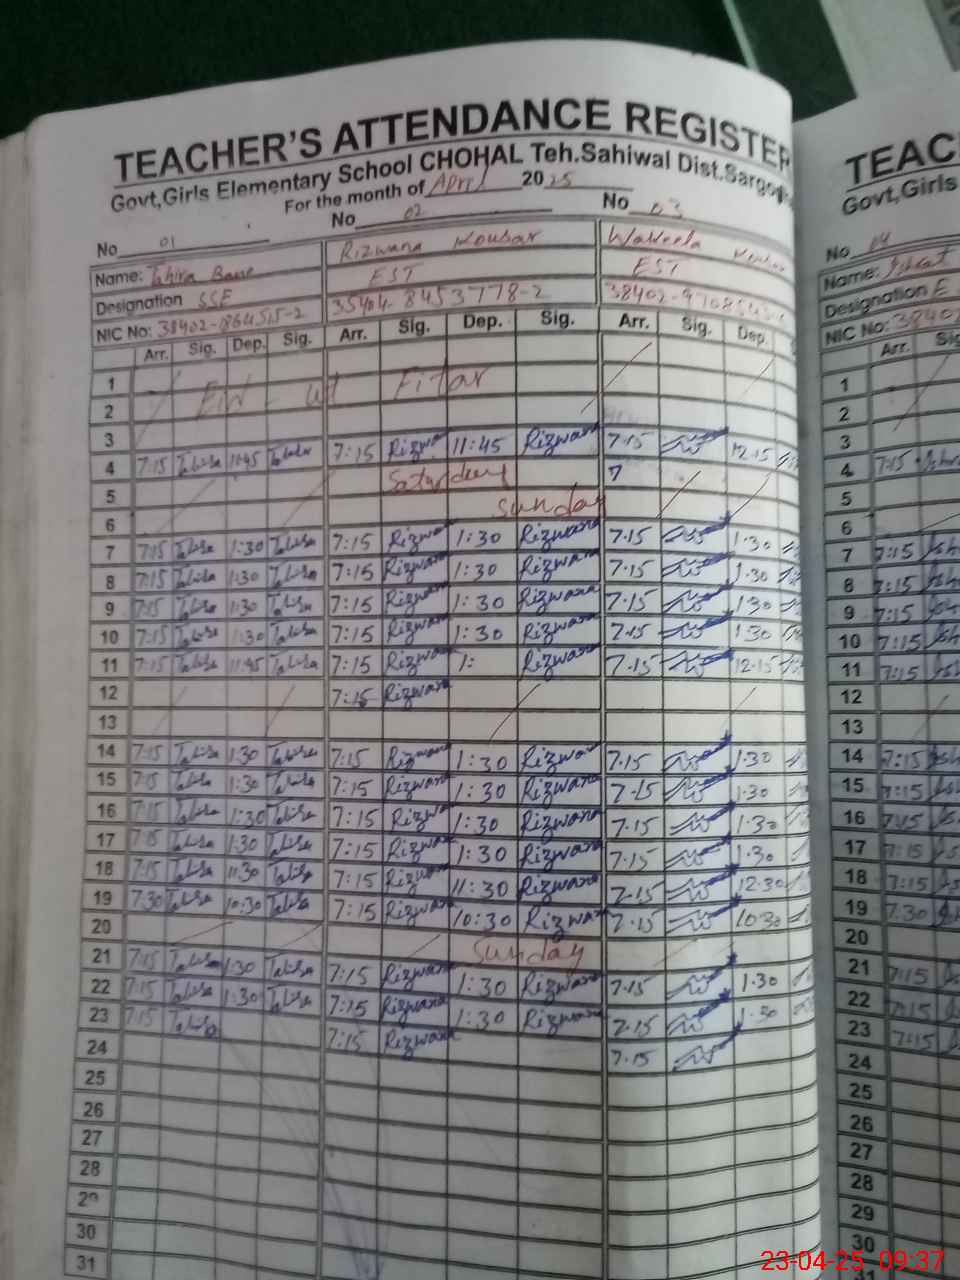 TEACHER'S ATTENDANCE REGISTER
Govt,Girls Elementary School CHOHAL Teh.Sahiwal Dist.Sargo
For the month of April 2025
No 01 No 02 No 03
Name: Tahira Bano Rizwana Kousar Wakeela
Designation SSE EST EST
NIC No: 35404-8453778-2
Arr. Sig. Dep. Sig. Arr. Sig. Dep. Sig. Arr. Sig. Dep.
1 Eid ul Fitar
2
3
4 7:15 Tahira 11:45 Tahira 7:15 Rizwana 11:45 Rizwana 7.15 12.15
5 Saturday 7
6 Sunday
7 7:15 Tahira 1:30 Tahira 7:15 Rizwana 1:30 Rizwana 7.15 1.30
8 7:15 Tahira 1:30 Tahira 7:15 Rizwana 1:30 Rizwana 7.15 1.30
9 7:15 Tahira 1:30 Tahira 7:15 Rizwana 1:30 Rizwana 7.15 1.30
10 7:15 Tahira 1:30 Tahira 7:15 Rizwana 1:30 Rizwana 7.15 1.30
11 7:15 Tahira 11:45 Tahira 7:15 Rizwana 1: Rizwana 7.15 12.15
12 7:15 Rizwana
13
14 7:15 Tahira 1:30 Tahira 7:15 Rizwana 1:30 Rizwana 7.15 1.30
15 7:15 Tahira 1:30 Tahira 7:15 Rizwana 1:30 Rizwana 7.15 1.30
16 7:15 Tahira 1:30 Tahira 7:15 Rizwana 1:30 Rizwana 7.15 1.30
17 7:15 Tahira 1:30 Tahira 7:15 Rizwana 1:30 Rizwana 7.15 1.30
18 7:15 Tahira 11:30 Tahira 7:15 Rizwana 11:30 Rizwana 7.15 12.30
19 7:30 Tahira 10:30 Tahira 7:15 Rizwana 10:30 Rizwana 7.15 10.30
20 Sunday
21 7:15 Tahira 1:30 Tahira 7:15 Rizwana 1:30 Rizwana 7.15 1.30
22 7:15 Tahira 1:30 Tahira 7:15 Rizwana 1:30 Rizwana 7.15 1.30
23 7:15 Tahira 7:15 Rizwana 7.15
24
25
26
27
28
29
30
31
TEAC
Govt,Girls
No 04
Name: Ishrat
Designation E
NIC No: 3840
Arr. Sig
1
2
3
4 7:15
5
6
7 7:15
8 7:15
9 7:15
10 7:15
11 7:15
12
13
14 7:15
15 7:15
16 7:15
17 7:15
18 7:15
19 7:30
20
21 7:15
22 7:15
23 7:15
24
25
26
27
28
29
30
31
23-04-25 09:37